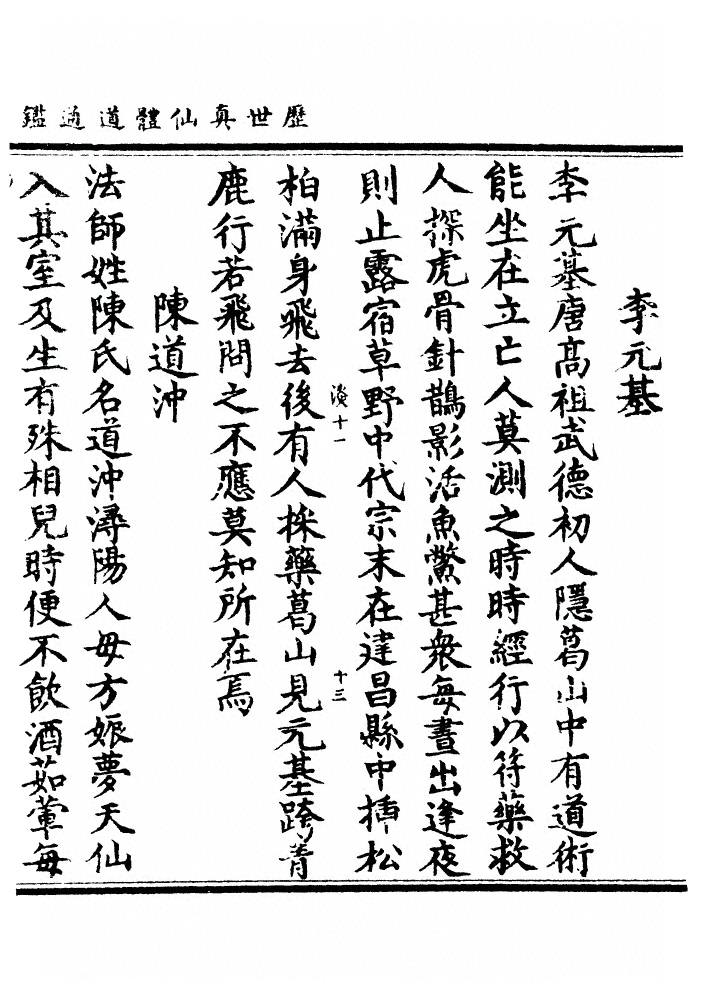 歷世真仙體道通鑑
李元基
李元基唐高祖武德初人隱葛山中有道術
能坐在立亡人莫測之時時經行以符藥救
人探虎骨針鵲影活魚鱉甚衆每晝出逢夜
則止露宿草野中代宗末在建昌縣中揷松
柏滿身飛去後有人採藥葛山見元基跨青
淡十一
十三
鹿行若飛問之不應莫知所在焉
陳道沖
法師姓陳氏名道沖潯陽人母方娠夢天仙
入其室及生有殊相兒時便不飲酒茹葷每